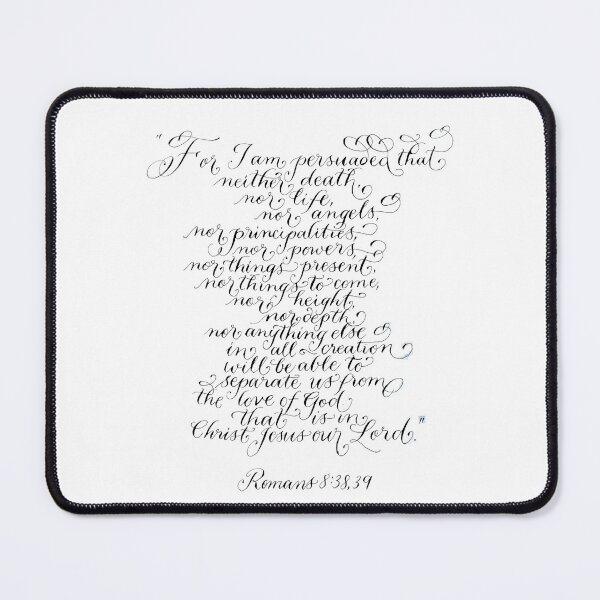 "For I am persuaded that
neither death,
nor life,
nor angels,
nor principalities,
nor powers,
nor things present,
nor things to come,
nor height,
nor depth,
nor anything else
in all creation
will be able to
separate us from
the love of God
that is in
Christ Jesus our Lord."
Romans 8:38,39